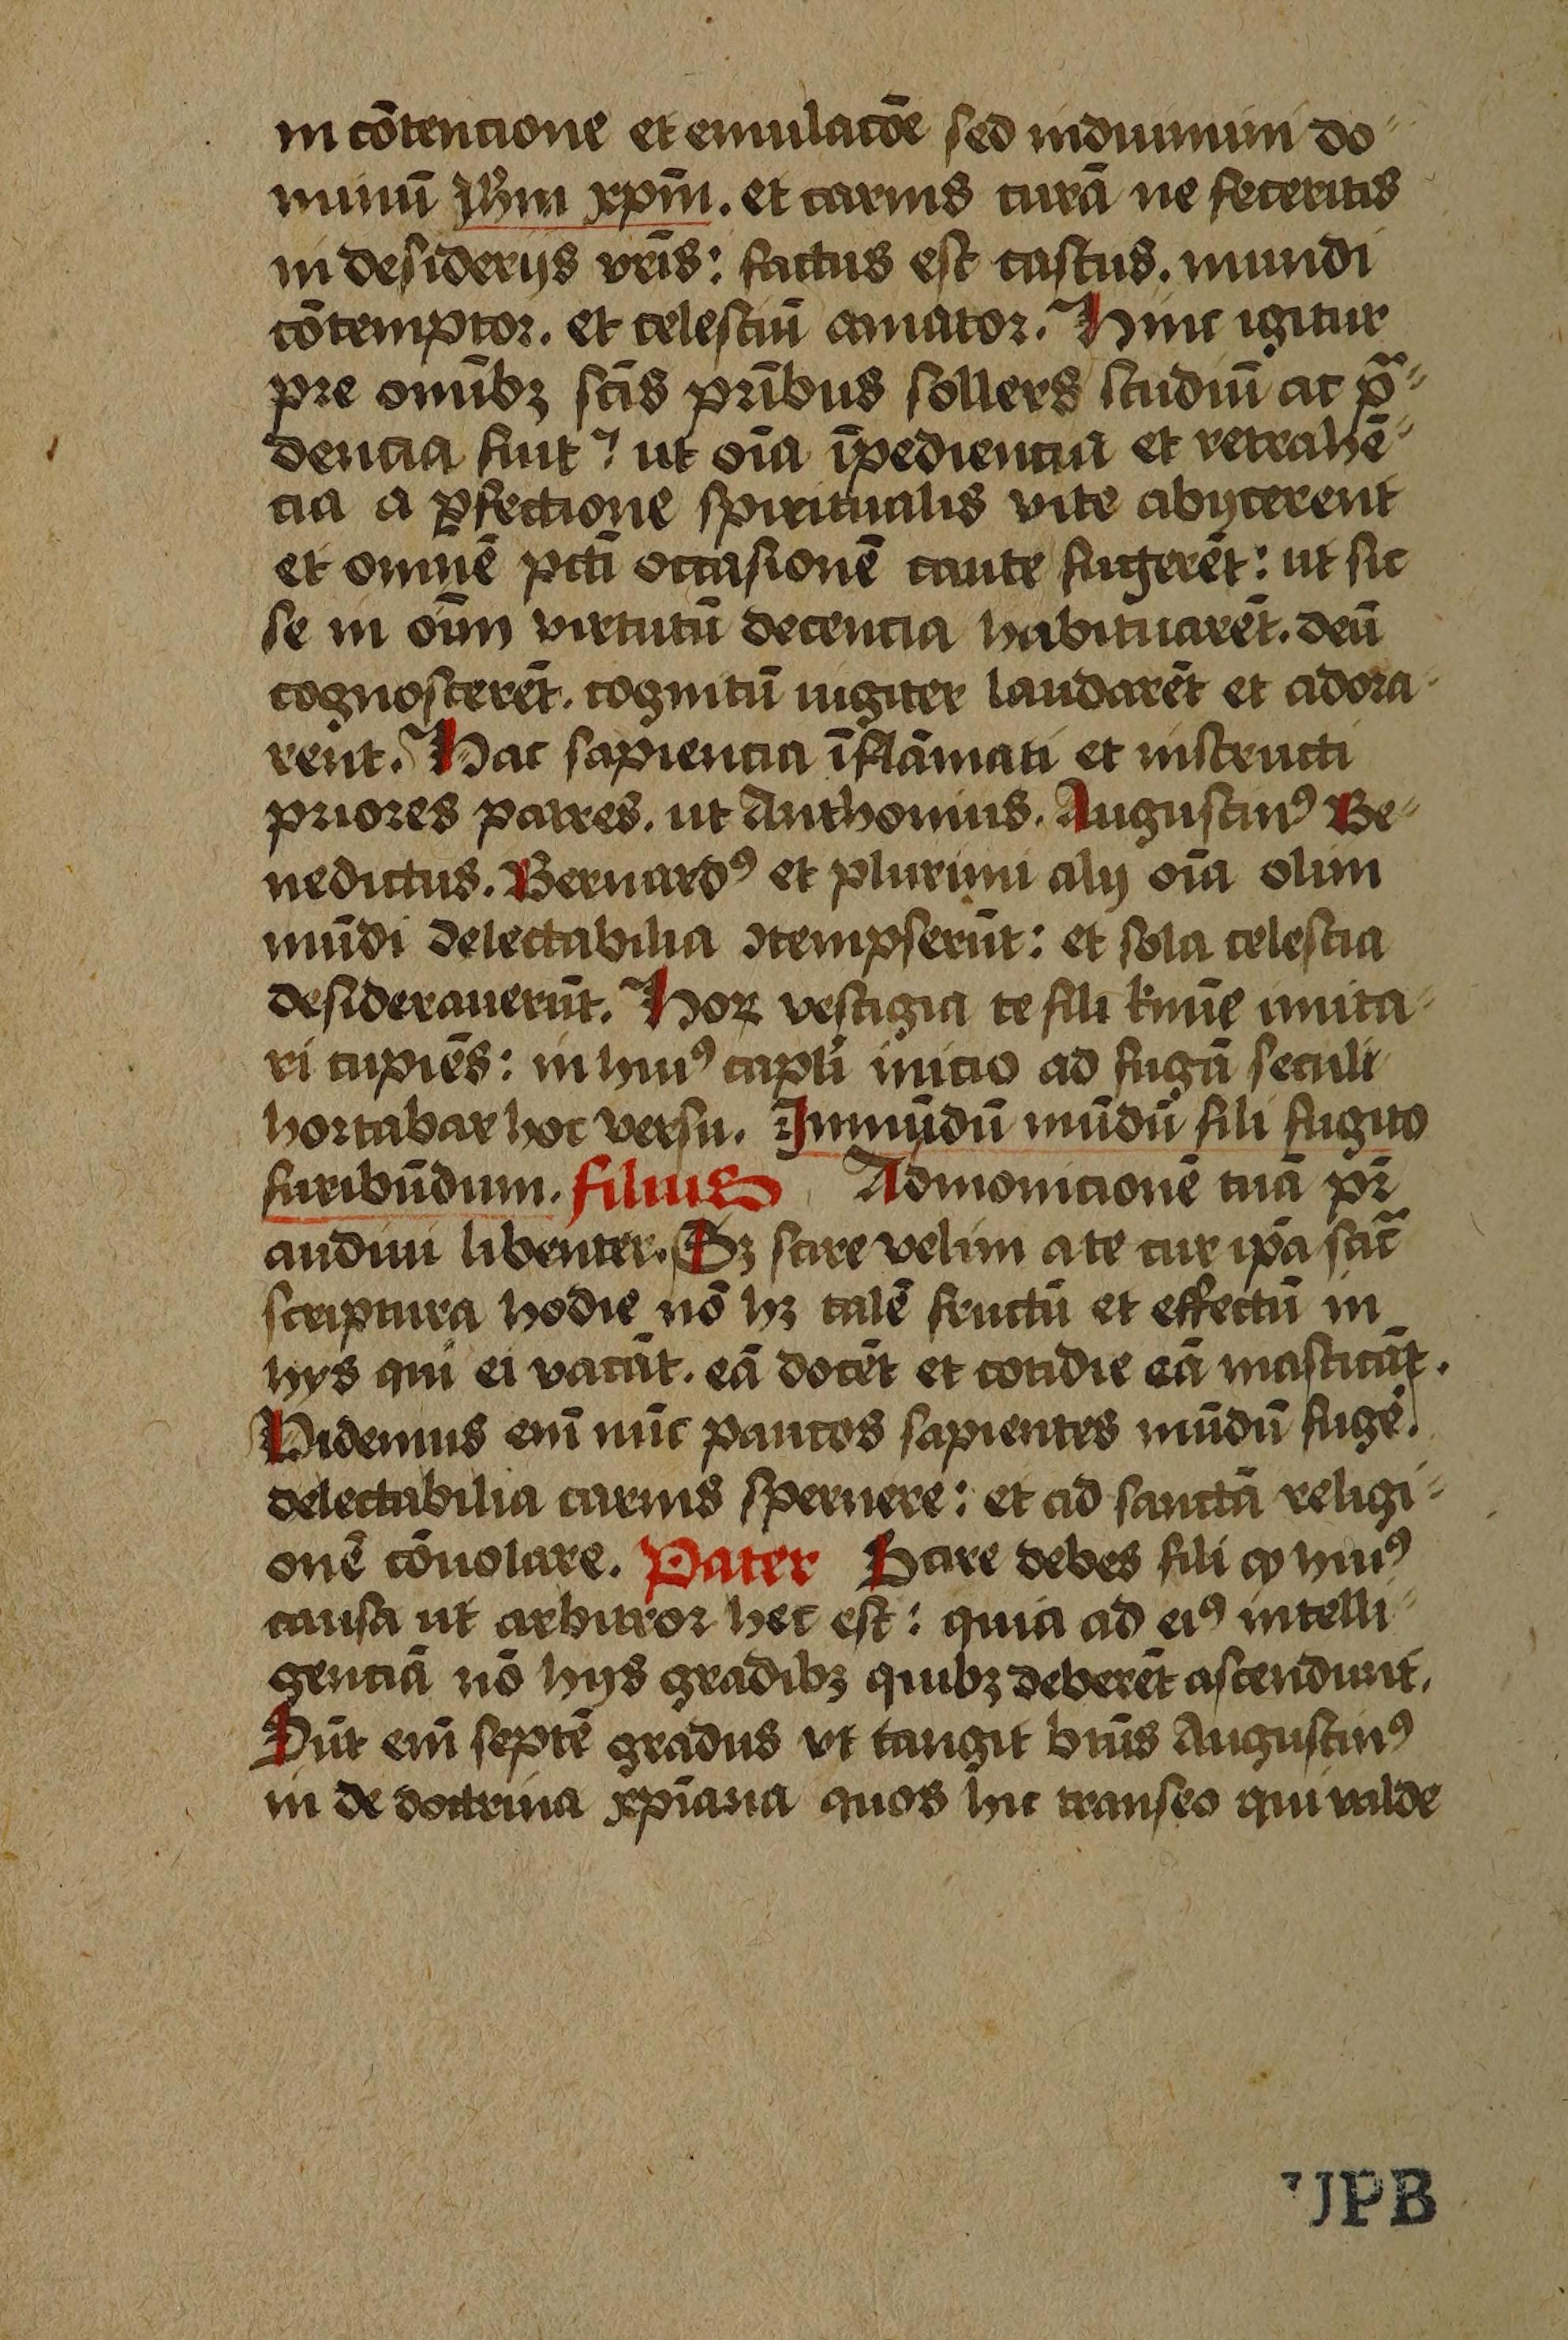 in cōtencione et emulacōe sed induimini do-
minū Jhm xpm̄. et carnis curā ne feceritis
in desiderijs vrīs: factus est castus. mundi
cōtemptor. et celestiū amator. Hinc igitur
pre omībꝫ scīs prībus sollers studiū ac pᵃ-
dencia fuit? ut oīa īpediencia et retrahē-
cia a ꝑfectione spiritualis vite abijcerent
et omnē pctī occasionē caute fugerēt: ut sic
se in oīm virtutū decencia habituarēt. deū
cognoscerēt. cognitū iugiter laudarēt et adora-
rent. Hac sapiencia īflāmati et instructi
priores patres. ut Anthonius. Augustinꝰ Be-
nedictus. Bernardꝰ et plurimi alij oīa olim
mūdi delectabilia ꝯtempserūt: et sola celestia
desiderauerūt. Hoꝝ vestigia te fili kīme imita-
ri cupiēs: in huiꝰ capli inicio ad fugā seculi
hortabar hoc versu. Jmmūdū mūdū fili fugito
furibūdum. filius Admonicionē tuā pr̄
audiui libenter. Sꝫ scire velim a te cur ip̄a sac̄
scriptura hodie nō hꝫ talē fructū et effectū in
hys qui ei vacāt. eā docēt et cotidie eā masticāt.
Videmus enī nūc paucos sapientes mūdū fuge'.
delectabilia carnis spernere: et ad sanctā religi-
onē cōuolare. Pater Scire debes fili ꝙ huiꝰ
causa ut arbitror hec est: quia ad eiꝰ intelli-
genciā nō hijs gradibꝫ quibꝫ deberēt ascendunt.
Sūt enī septē gradus vt tangit btūs Augustinꝰ
in de doctrina xpīana quos hic transeo qui valde
UPB